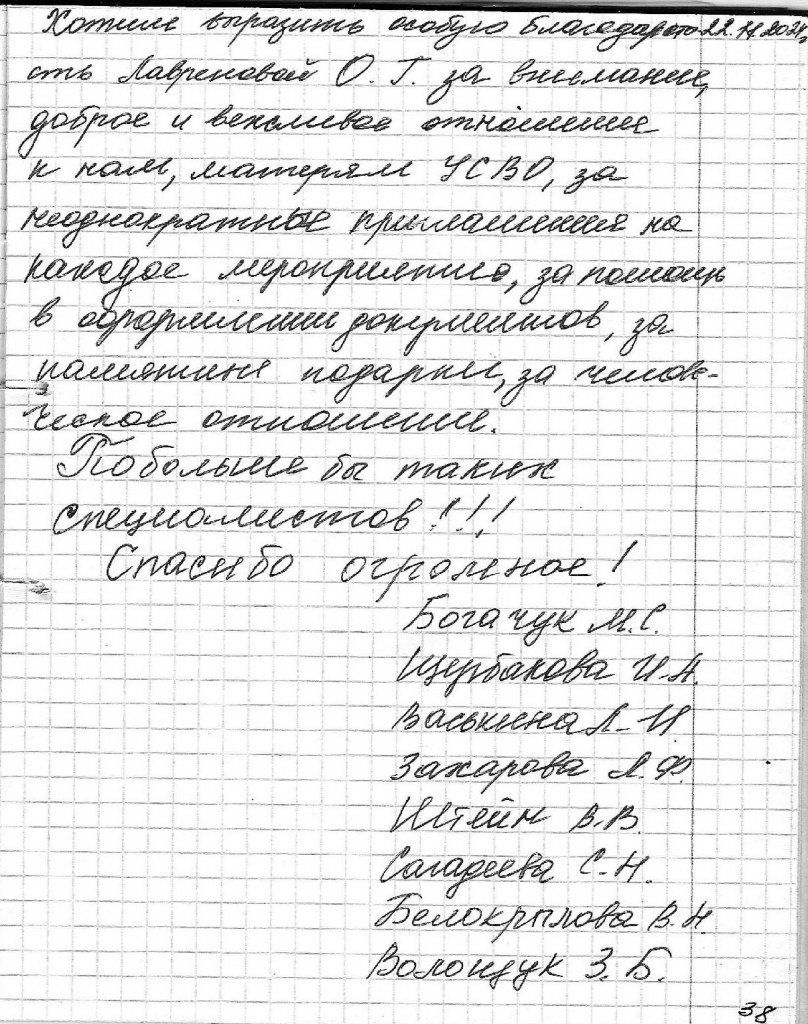 Хотим выразить особую благодарно 22.11.2024.
сть Лавреновой О. Г. за внимание,
доброе и вежливое отношение
к нам, матерям УСВО, за
неоднократные приглашения на
каждое мероприятие, за помощь
в оформлении документов, за
памятные подарки, за челове-
ческое отношение.
Побольше бы таких
специалистов!!!
Спасибо огромное!
Богачук М.С.
Щербакова И.А.
Васькина Л.И.
Захарова Л.Ф.
Штейн В.В.
Сагадеева С.Н.
Белокрылова В.Н.
Волощук З.Б.
38